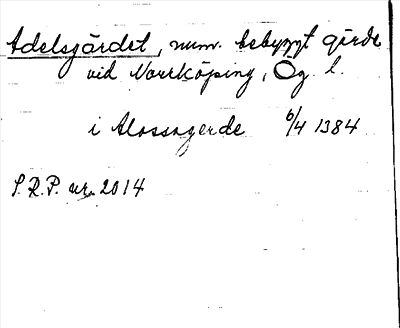 Adelsgärdet, num. bebyggt gärde
vid Norrköping, Ög. l.
i Alossagerde 6/4 1384
S.R.P. nr. 2014